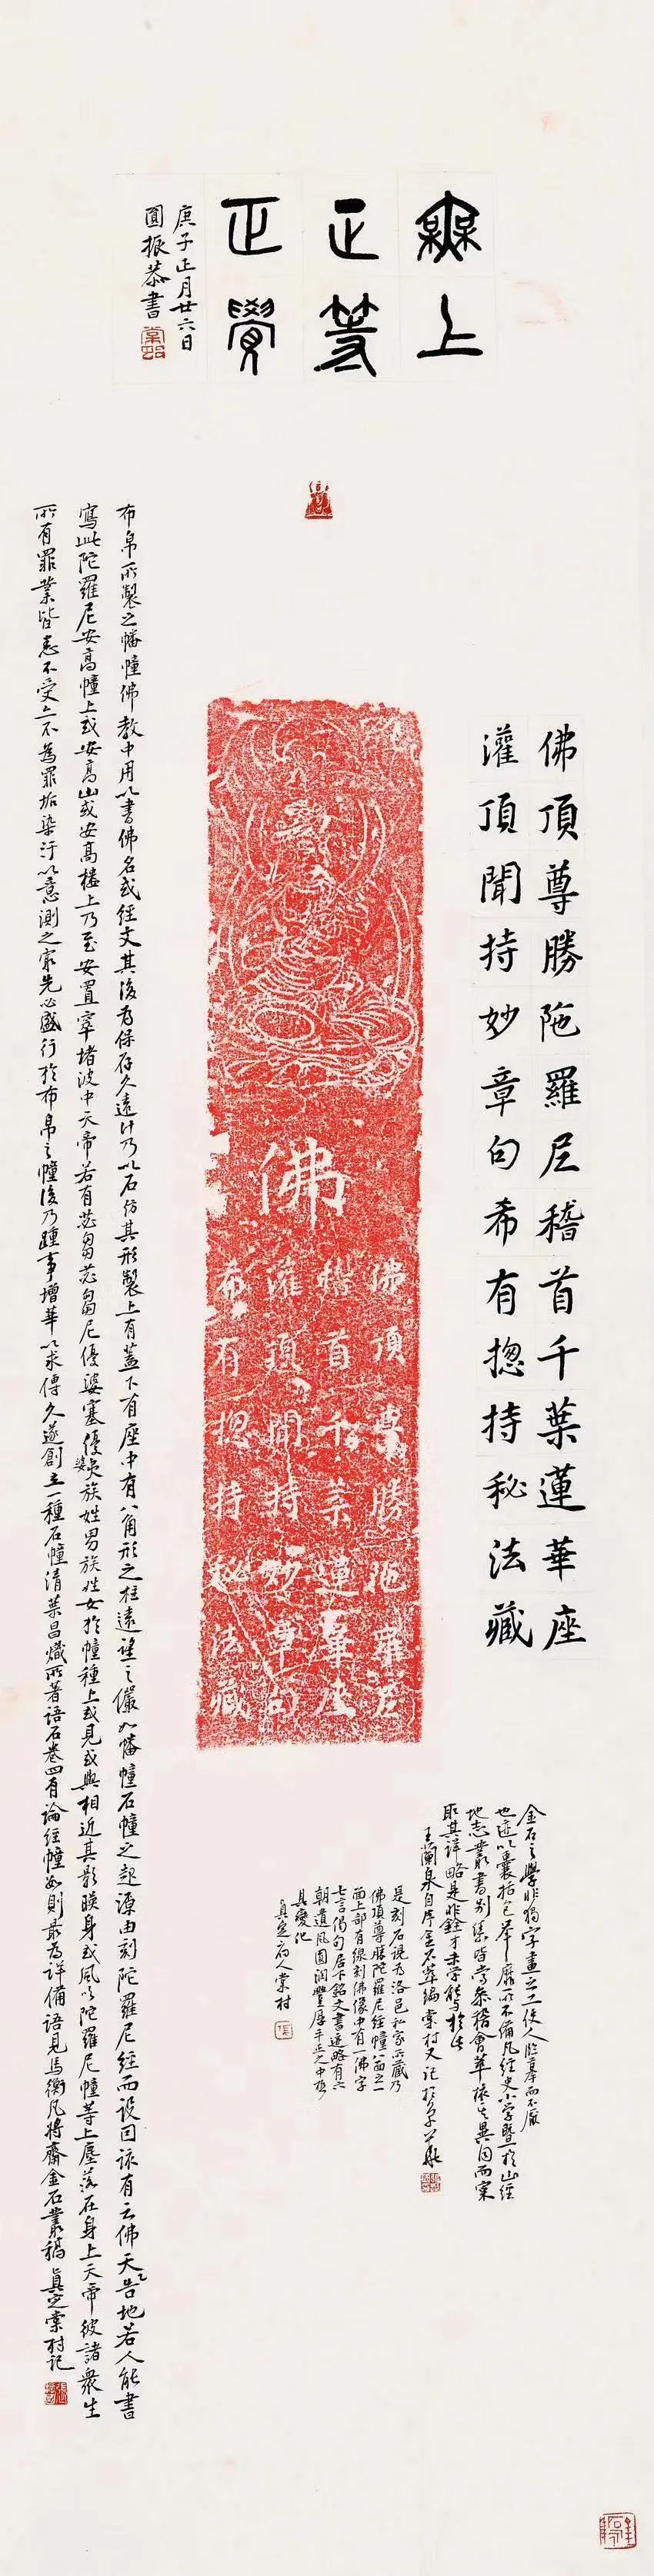 無上
正等
正覺
庚子正月廿六日
圓振恭書
佛頂尊勝陁羅尼稽首千葉蓮華座
灌頂聞持妙章句希有揔持秘法藏
佛
佛頂尊勝陁羅尼
稽首千葉蓮華座
灌頂聞持妙章句
希有揔持秘法藏
金石之學非獨字畫之工使人臨摹而不厭
也迹以囊括包舉靡所不備凡經史小學暨於山經
地志叢書別集皆當參稽會萃核其異同而寀
取其詳略是非銓才末學能與於此
王蘭泉自序金石萃編棠村又記於
是刻石誢為洛邑私家所藏乃
佛頂尊勝陀羅尼經幢八面之一
面上部有線刻佛像中有一佛字
七言偈句居下銘文書迹略有六
朝遺風圓潤豐厚平正之中極
其變化
真定府人棠村
布帛所製之幡幢佛教中用以書佛名或經文其後為保存久遠計乃以石仿其形製上有蓋下有座中有八角形之柱遠望之儼如幡幢石幢之起源由刻陀羅尼經而設因該有云佛天告地若人能書
寫此陀羅尼安高幢上或安高山或安高樓上乃至安置窣堵波中天帝若有苾芻苾芻尼優婆塞優婆夷族姓男族姓女於幢種上或見或與相近其影暎身或風吹陀羅尼幢等上塵落在身上天帝彼諸衆生
所有罪業皆悉不受亦不為罪垢染汙以意測之寂先必盛行於布帛之幢後乃踵事增華以求傳久遂創立一種石幢清葉昌熾所著語石卷四有論經幢數則最為詳備語見馬衡凡將齋金石叢稿真定棠村記